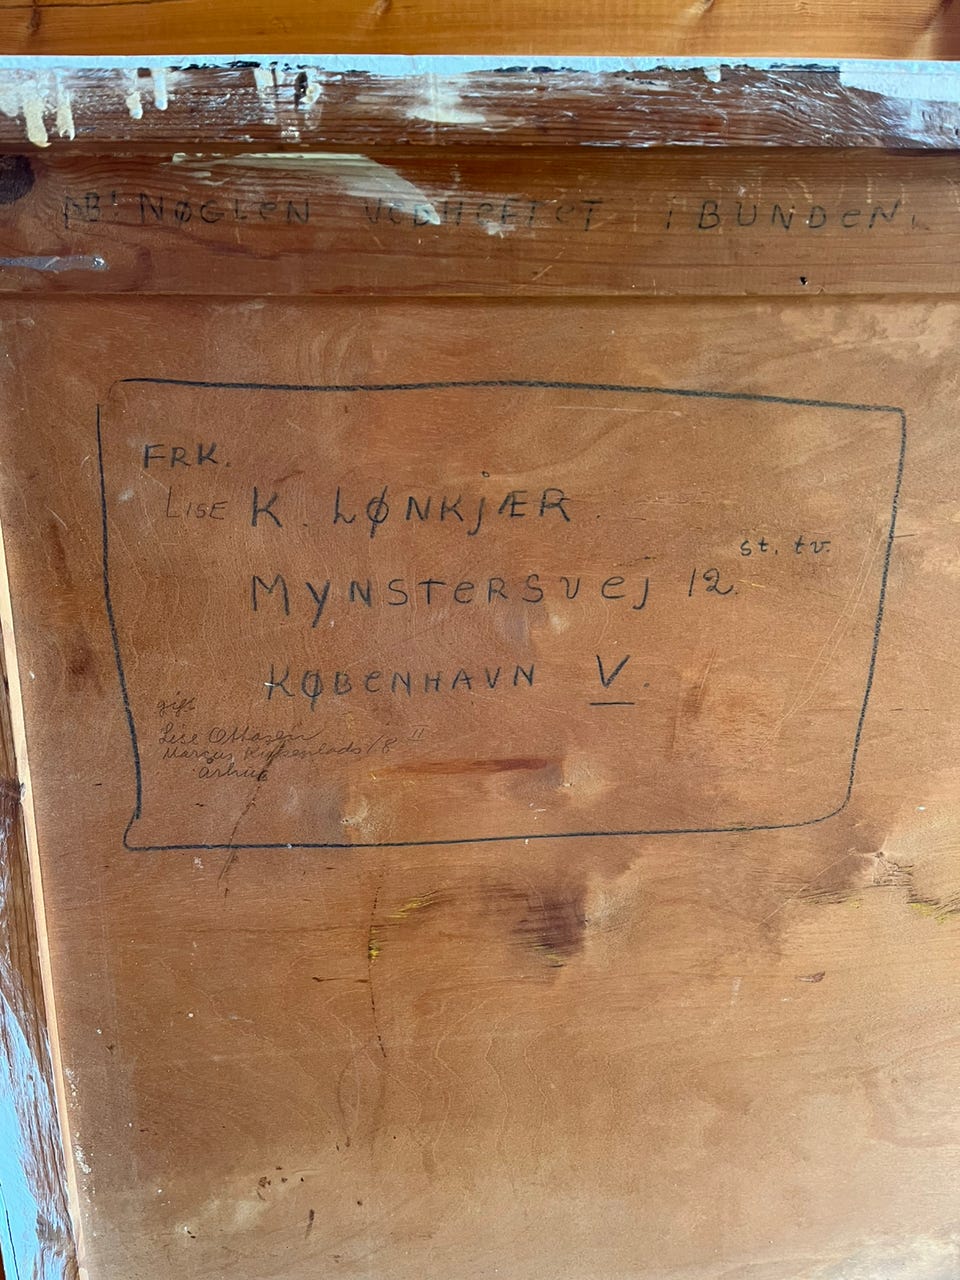 NB! NØGLEN VEDHEFTET i BUNDEN.
FRK.
LISE K. LØNKJÆR.
st. tv.
MYNSTERSVEJ 12.
KØBENHAVN V.
gift
Lise Ottosen
Marcus 18 II
Århus